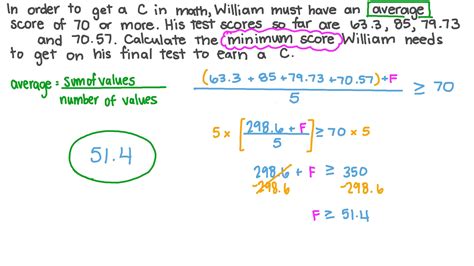 In order to get a C in math, William must have an average
score of 70 or more. His test scores so far are 63.3, 85, 79.73
and 70.57. Calculate the minimum score William needs
to get on his final test to earn a C.
average = sum of values / number of values
(63.3 + 85 + 79.73 + 70.57) + F / 5 ≥ 70
5 × [298.6 + F / 5] ≥ 70 × 5
51.4
298.6 + F ≥ 350
-298.6 -298.6
F ≥ 51.4